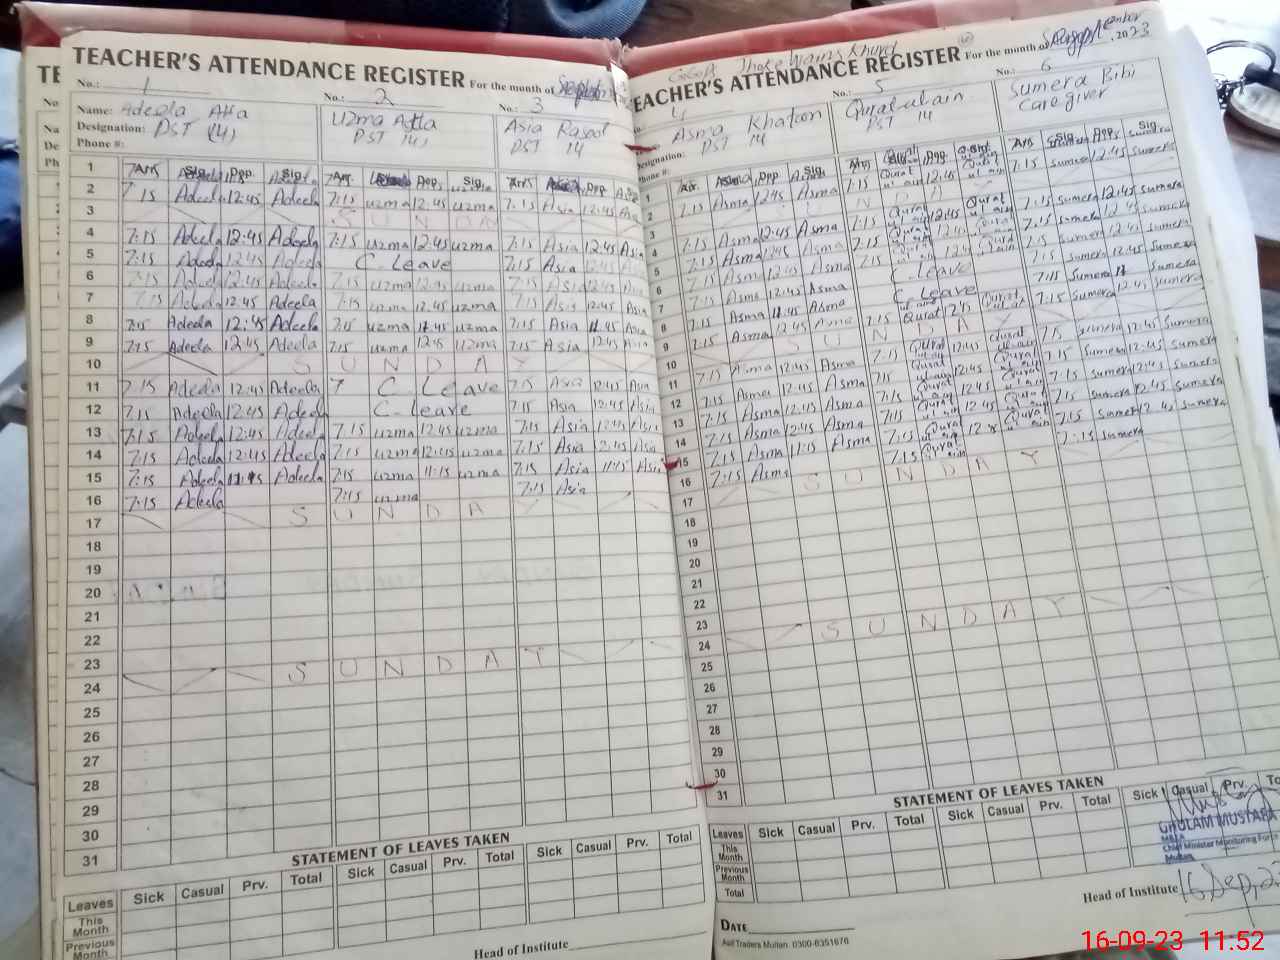 TEACHER'S ATTENDANCE REGISTER For the month of
No.: 1 No.: 2 No.: 3
Name: Adeela Atta Uzma Atta Asia Rasool
Designation: PST (4) PST 14) PST 14
Phone #:
1 Arr. Sig. Dep. Sig. Arr. Dep. Sig. Arr. Dep.
2 7:15 Adeela 12:45 Adeela 7:15 uzma 12:45 uzma 7:15 Asia 12:45 Asia
3 S U N D A
4 7:15 Adeela 12:45 Adeela 7:15 uzma 12:45 uzma 7:15 Asia 12:45 Asia
5 7:15 Adeela 12:45 Adeela C. Leave 7:15 Asia 12:45
6 7:15 Adeela 12:45 Adeela 7:15 uzma 12:45 uzma 7:15 Asia 12:45 Asia
7 7:15 Adeela 12:45 Adeela 7:15 uzma 12:45 uzma 7:15 Asia 12:45 Asia
8 7:15 Adeela 12:45 Adeela 7:15 uzma 11:45 uzma 7:15 Asia 11:45 Asia
9 7:15 Adeela 12:45 Adeela 7:15 uzma 12:45 uzma 7:15 Asia 12:45 Asia
10 S U N D A Y
11 7:15 Adeela 12:45 Adeela 7 C Leave 7:15 Asia 12:45 Asia
12 7:15 Adeela 12:45 Adeela C- leave 7:15 Asia 12:45 Asia
13 7:15 Adeela 12:45 Adeela 7:15 uzma 12:45 uzma 7:15 Asia 12:45 Asia
14 7:15 Adeela 12:45 Adeela 7:15 uzma 12:45 uzma 7:15 Asia 12:45 Asia
15 7:15 Adeela 11:15 Adeela 7:15 uzma 11:15 uzma 7:15 Asia 11:45 Asia
16 7:15 Adeela 7:15 uzma 7:15 Asia
17 S U N D A Y
18
19
20
21
22
23
24 S U N D A Y
25
26
27
28
29
30
31
STATEMENT OF LEAVES TAKEN
Leaves Sick Casual Prv. Total Sick Casual Prv. Total Sick Casual Prv. Total
This Month
Previous Month
Head of Institute
GGPS Jhoke Wains Khurd
TEACHER'S ATTENDANCE REGISTER For the month of September, 2023
4 No.: 5 No.: 6
Asma Khatoon Quratulain Sumera Bibi
Designation: PST 14 PST 14 Caregiver
Phone #:
1 Arr. Dep. Sig. Arr. Dep. Arr. Sig. Dep. Sig.
2 7:15 Asma 12:45 Asma 7:15 Qurat ul ain 12:45 Qurat ul ain 7:15 Sumera 12:45 Sumera
3 S U N D A Y
4 7:15 Asma 12:45 Asma 7:15 Qurat ul ain 12:45 Qurat ul ain 7:15 Sumera 12:45 Sumera
5 7:15 Asma 12:45 Asma 7:15 Qurat ul ain 12:45 Qurat ul ain 7:15 Sumera 12:45 Sumera
6 7:15 Asma 12:45 Asma C-leave 7:15 Sumera 12:45 Sumera
7 7:15 Asma 12:45 Asma C- Leave 7:15 Sumera 12:45 Sumera
8 7:15 Asma 11:45 Asma 7:15 Sumera Sumera
9 7:15 Asma 12:45 Asma Qurat 12:45 Qurat 7:15 Sumera 12:45 Sumera
10 S U N D A Y
11 7:15 Asma 12:45 Asma 7:15 Qurat ul ain 12:45 Qurat ul ain 7:15 Sumera 12:45 Sumera
12 7:15 Asma 12:45 Asma 7:15 Qurat ul ain 12:45 Qurat ul ain 7:15 Sumera 12:45 Sumera
13 7:15 Asma 12:45 Asma 7:15 Qurat ul ain 12:45 Qurat ul ain 7:15 Sumera 12:45 Sumera
14 7:15 Asma 12:45 Asma 7:15 Qurat ul ain 12:45 Qurat ul ain 7:15 Sumera 12:45 Sumera
15 7:15 Asma 11:15 Asma 7:15 Qurat ul ain
16 7:15 Asma 7:15 Qurat ul ain 7:15 Sumera
17 S U N D A Y
18
19
20
21
22
23
24 S U N D A Y
25
26
27
28
29
30
31
STATEMENT OF LEAVES TAKEN
Leaves Sick Casual Prv. Total Sick Casual Prv. Total Sick Casual Prv.
This Month
Previous Month
Total
GHULAM MUSTAFA
MEA
Chief Minister Monitoring
Multan
Head of Institute 16 Sep, 23
DATE
Asif Traders Multan. 0300-6351676
16-09-23 11:52